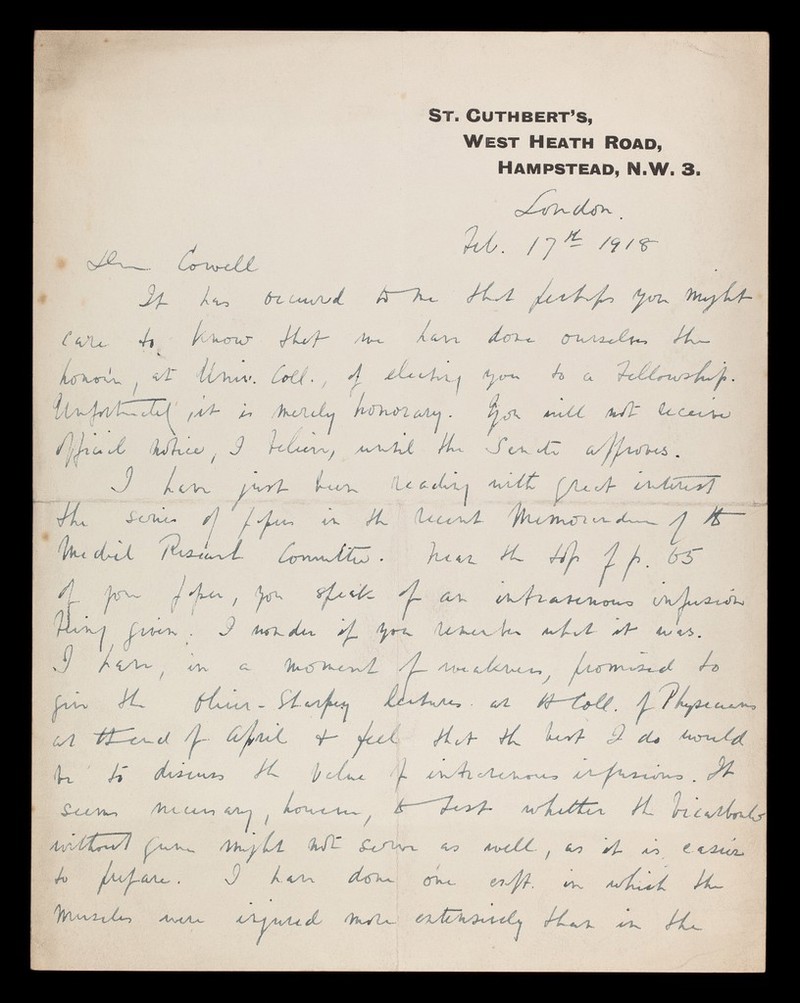 ST. CUTHBERT'S,
WEST HEATH ROAD,
HAMPSTEAD, N.W. 3.
London.
Feb. 17th 1918
Dear Cowell
It has occurred to me that perhaps you might
care to know that we have done ourselves the
honour, at Univ. Coll., of electing you to a Fellowship.
Unfortunately, it is merely honorary. You will not receive
official notice, I believe, until the Senate approves.
I have just been reading with great interest
the series of papers in the recent Memorandum of the
Medical Research Committee. Near the top of p. 65
of your paper, you speak of an intravenous infusion
being given. I wonder if you remember what it was.
I have, in a moment of weakness, promised to
give the Oliver-Sharpey lectures at the Coll. of Physicians
at the end of April & feel that the best I do would
be to discuss the value of intravenous infusions. It
seems necessary, however, to test whether the bicarbonate
without gum might not serve as well, as it is easier
to prepare. I have done one expt. in which the
muscles were injured more extensively than in the